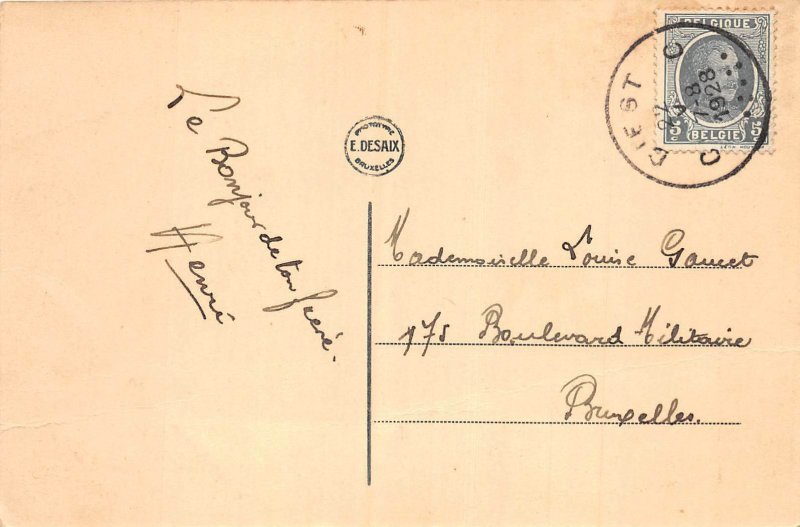 Le Bonjour de ton frère.
Henri
PROTOTYPE
E. DESAIX
BRUXELLES
BELGIQUE
5c 5c
BELGIË
DIEST
C C
7-8
1928
Mademoiselle Louise
175 Boulevard Militaire
Bruxelles.